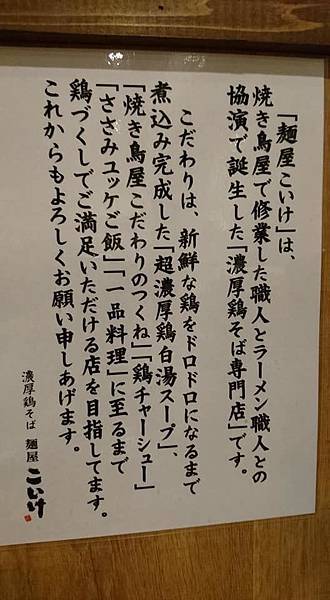 「麺屋 こいけ」は、
焼き鳥屋で修業した職人とラーメン職人との
協演で誕生した「濃厚鶏そば専門店」です。
こだわりは、新鮮な鶏をドロドロになるまで
煮込み完成した「超濃厚鶏白湯スープ」、
「焼き鳥屋こだわりのつくね」「鶏チャーシュー」
「ささみユッケご飯」「一品料理」に至るまで
鶏づくしでご満足いただける店を目指してます。
これからもよろしくお願い申しあげます。
濃厚鶏そば 麺屋 こいけ